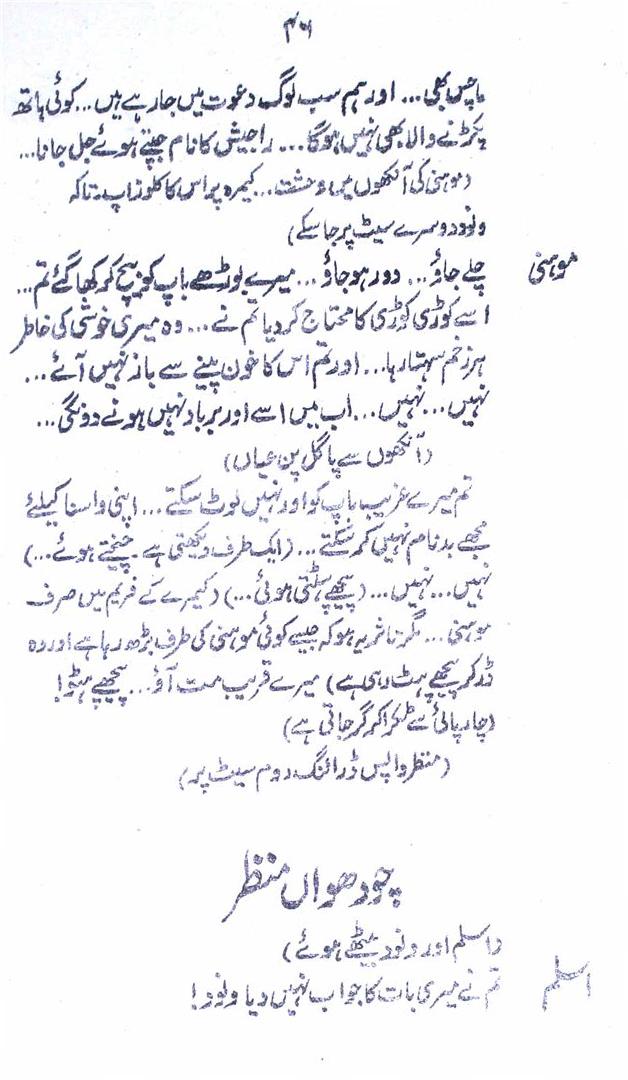 ۴۶
ماچس بھی... اور ہم سب لوگ دعوت میں جا رہے ہیں... کوئی ہاتھ
پکڑنے والا بھی نہیں ہوگا... راجیش کا نام جپتے ہوئے جل جانا...
(موہنی کی آنکھوں میں وحشت... کیمرہ پر اس کا کلوزاپ۔ تاکہ
ونود دوسرے سیٹ پر جا سکے)
موہنی چلے جاؤ... دور ہو جاؤ... میرے بوڑھے باپ کو بیچ کر کھا گئے تم...
اسے کوڑی کوڑی کا محتاج کر دیا تم نے... وہ میری خوشی کی خاطر
ہر زخم سہتا رہا... اور تم اس کا خون پینے سے باز نہیں آئے...
نہیں... نہیں... اب میں اسے اور برباد نہیں ہونے دونگی...
(آنکھوں سے پاگل پن عیاں)
تم میرے غریب باپ کو اور نہیں لوٹ سکتے... اپنی واسنا کیلئے
مجھے بدنام نہیں کر سکتے... (ایک طرف دیکھتی ہے۔ چیختے ہوئے...)
نہیں... نہیں... (پیچھے ہٹتی ہوئی...) (کیمرے کے فریم میں صرف
موہنی... مگر تاثر یہ ہو کہ جیسے کوئی موہنی کی طرف بڑھ رہا ہے اور وہ
ڈر کر پیچھے ہٹ رہی ہے) میرے قریب مت آؤ... پیچھے ہٹو!
(چارپائی سے ٹکرا کر گر جاتی ہے)
(منظر واپس ڈرائنگ روم سیٹ پر)
چودھواں منظر
(اسلم اور ونود بیٹھے ہوئے)
اسلم تم نے میری بات کا جواب نہیں دیا ونود!